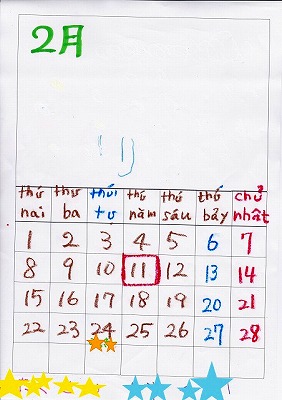 2月
thứ thứ thứ thứ thứ thứ chủ
hai ba tư năm sáu bảy nhất
1 2 3 4 5 6 7
8 9 10 11 12 13 14
15 16 17 18 19 20 21
22 23 24 25 26 27 28